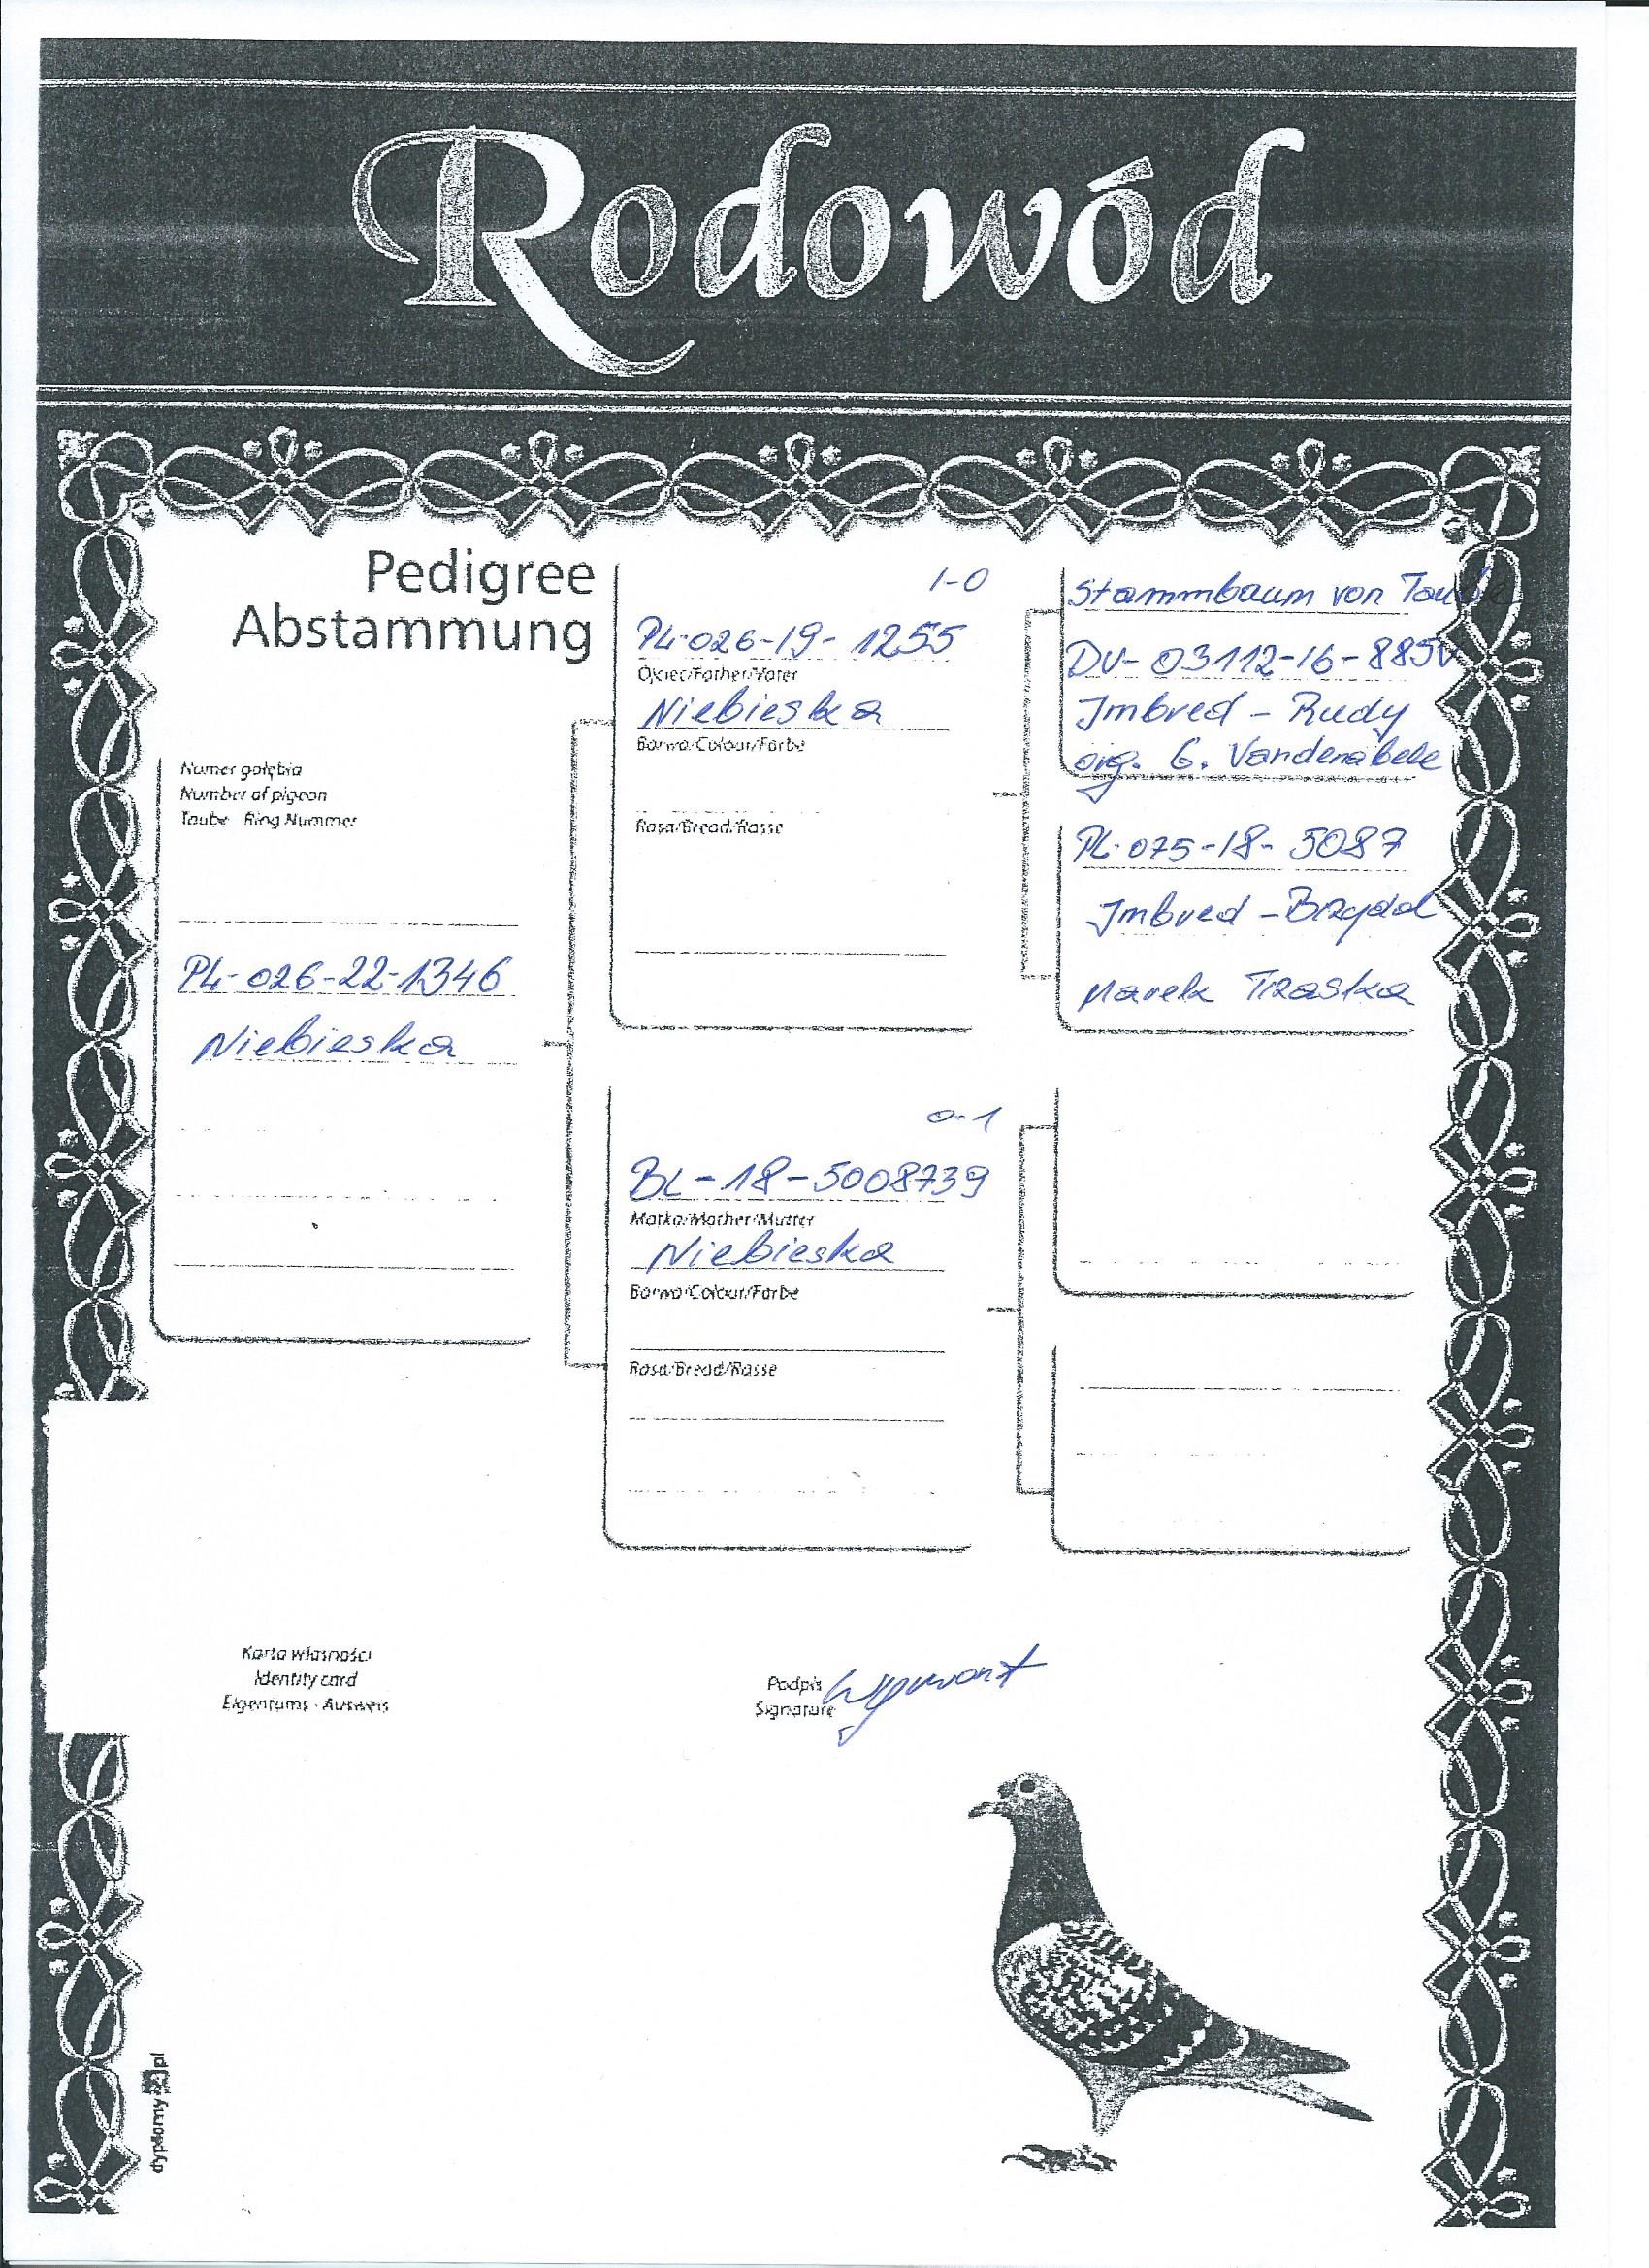 Rodowód
Pedigree
Abstammung
Numer gołębia
Number of pigeon
Taube Ring Nummer
PL-026-22-1346
Niebieska
1-0
PL-026-19-1255
Ojciec/Father/Vater
Niebieska
Barwa/Colour/Farbe
Rasa/Bread/Rasse
0-1
BL-18-5008739
Matka/Mother/Mutter
Niebieska
Barwa/Colour/Farbe
Rasa/Bread/Rasse
Stammbaum von Taube
DV-03112-16-885
Imbred - Rudy
org. G. Vandenabele
PL-075-18-5087
Imbred -
Marek Trzaska
Karta własności
Identity card
Eigentums - Ausweis
Podpis
Signature
dyplomy24.pl